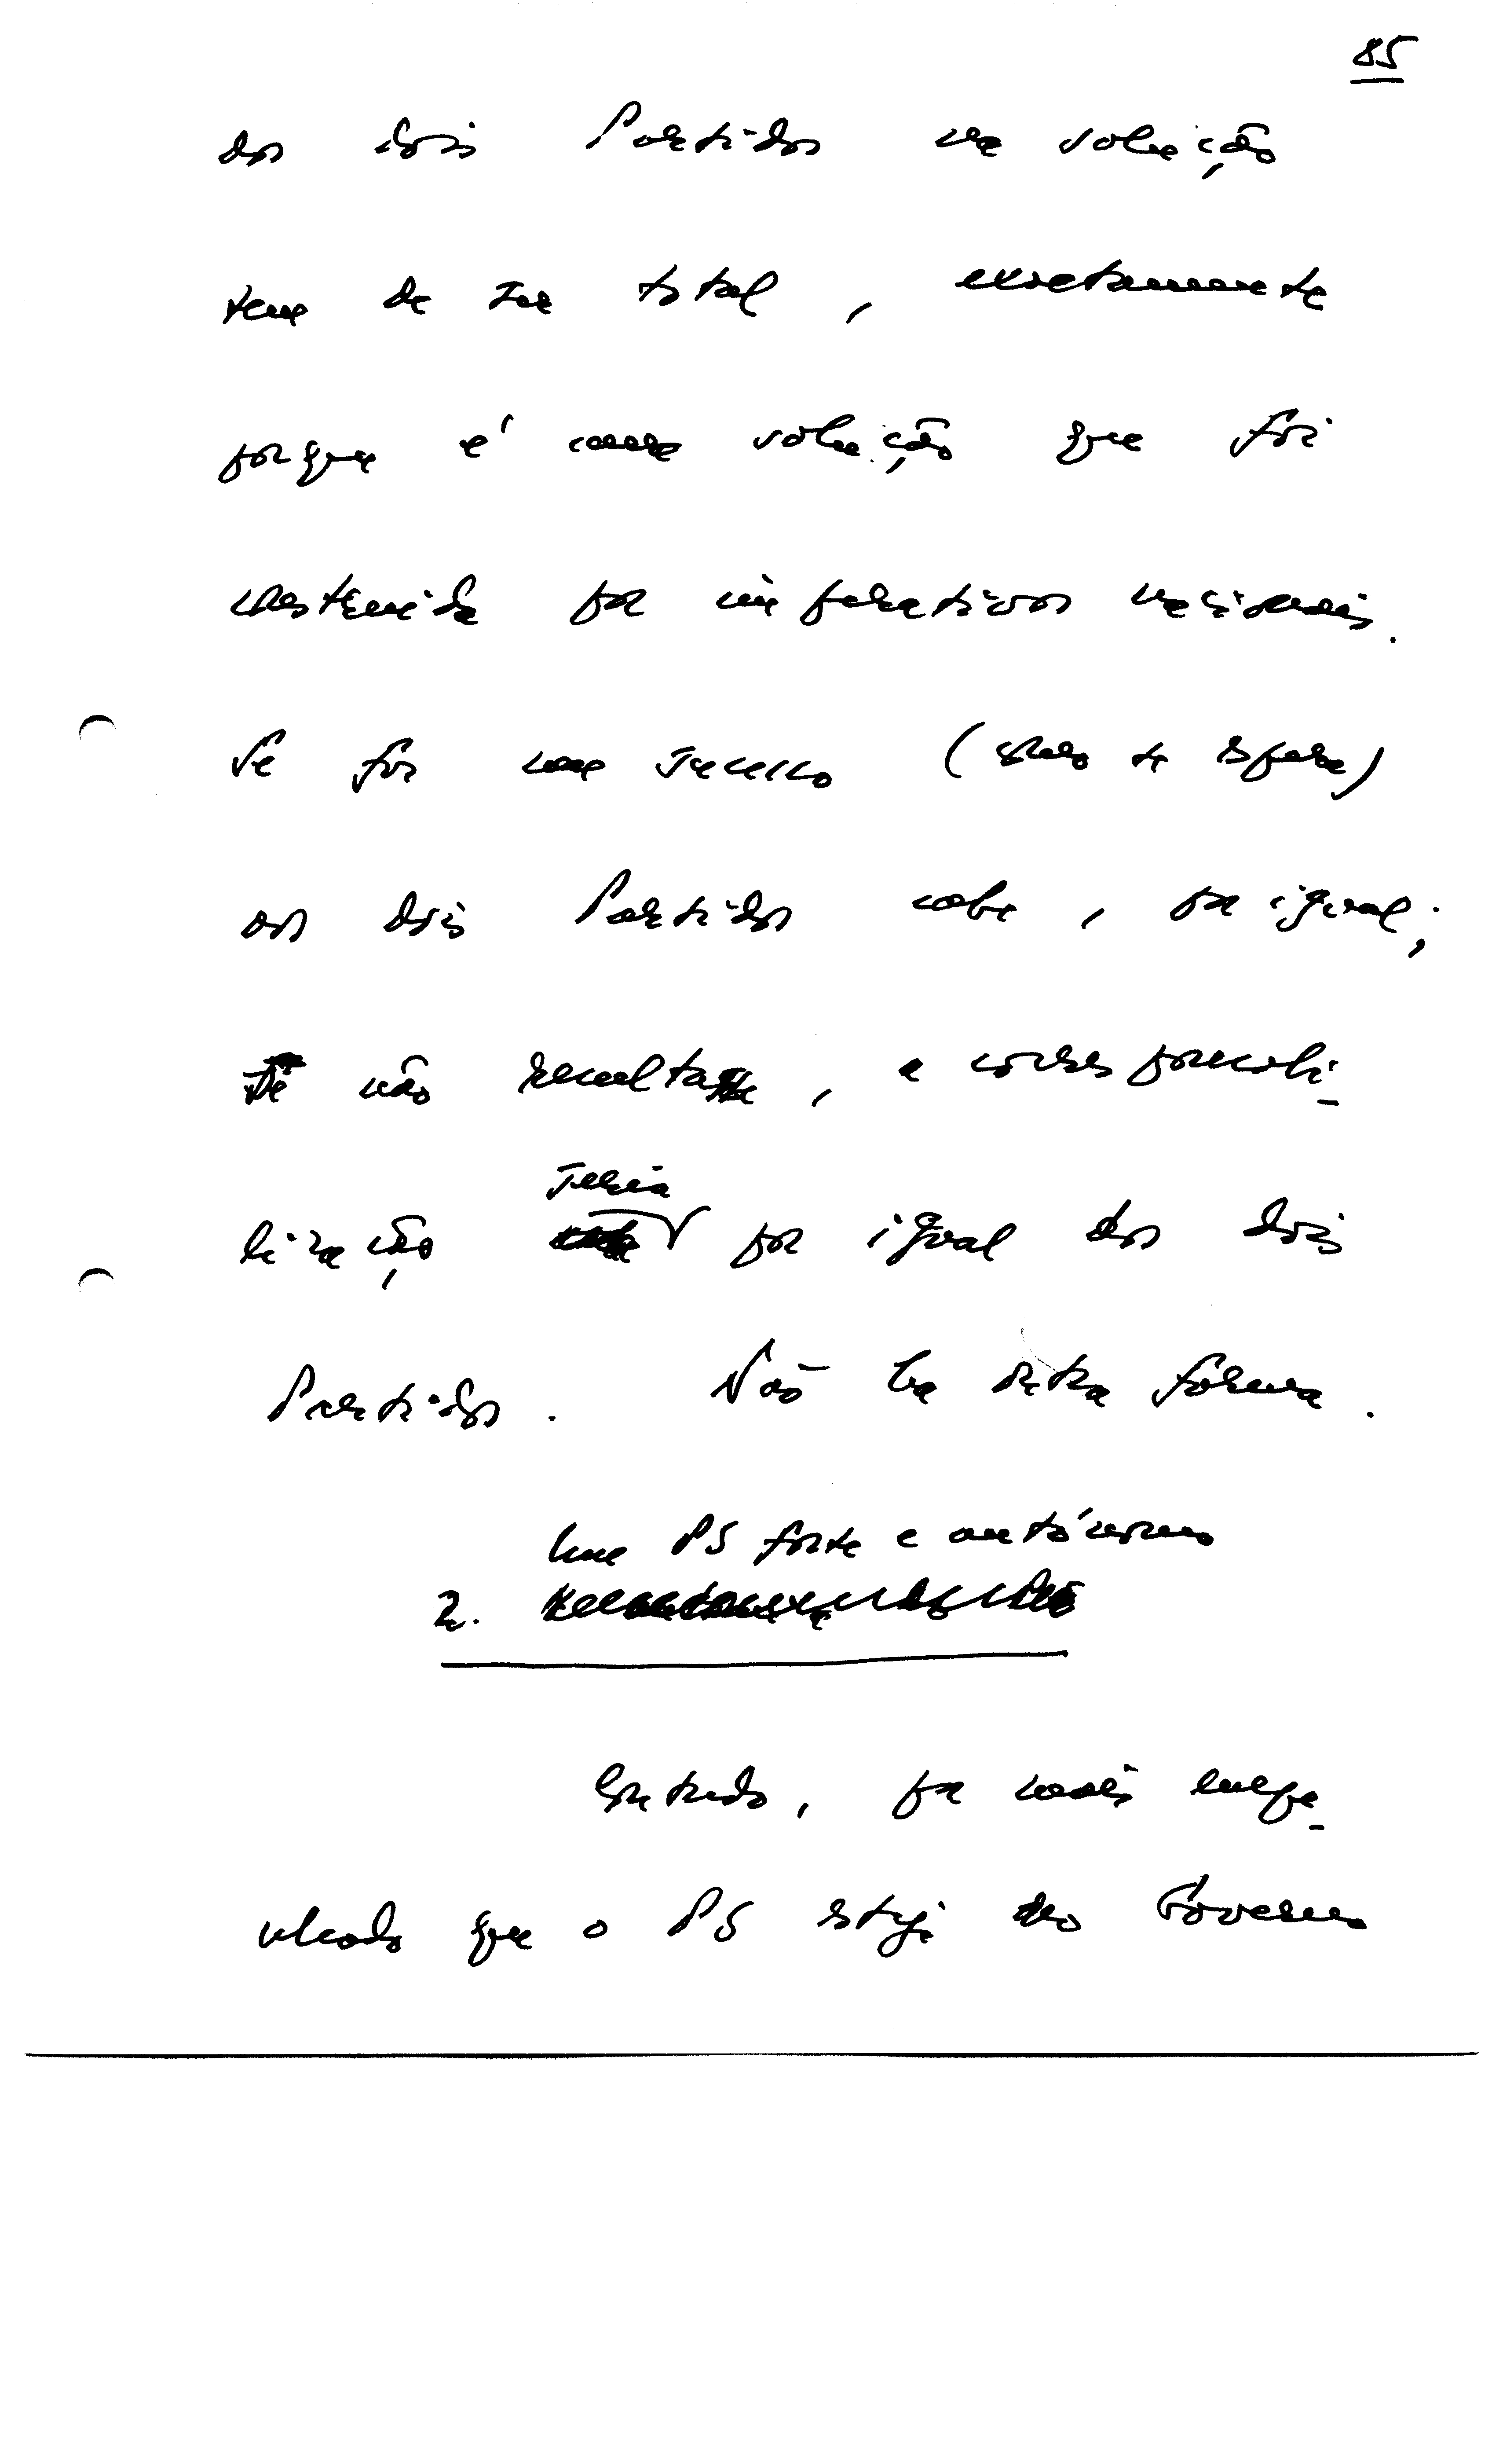 85
dos dois Partidos na solução
tem de ser total, exactamente
porque é uma solução que foi
construida por imperativos nacionais.
Se for um sucesso (como se espera)
aos dois Partidos cabe, por igual;
se não resultasse, a corresponsabi-
lização seria por igual dos dois
Partidos. Não há outra forma.
Um PS forte e autónomo
2.
Contudo, por mais empe-
nhado que o PS esteja no Governo